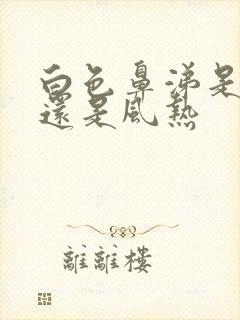 白色鼻涕是
還是風熱
離離樓